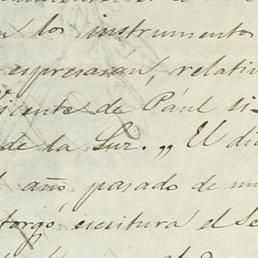 los instrumento
espresarán, relativ
icente de Paúl si
de la Luz. „ El dí
año, pasado de mi
torgó escritura el Se